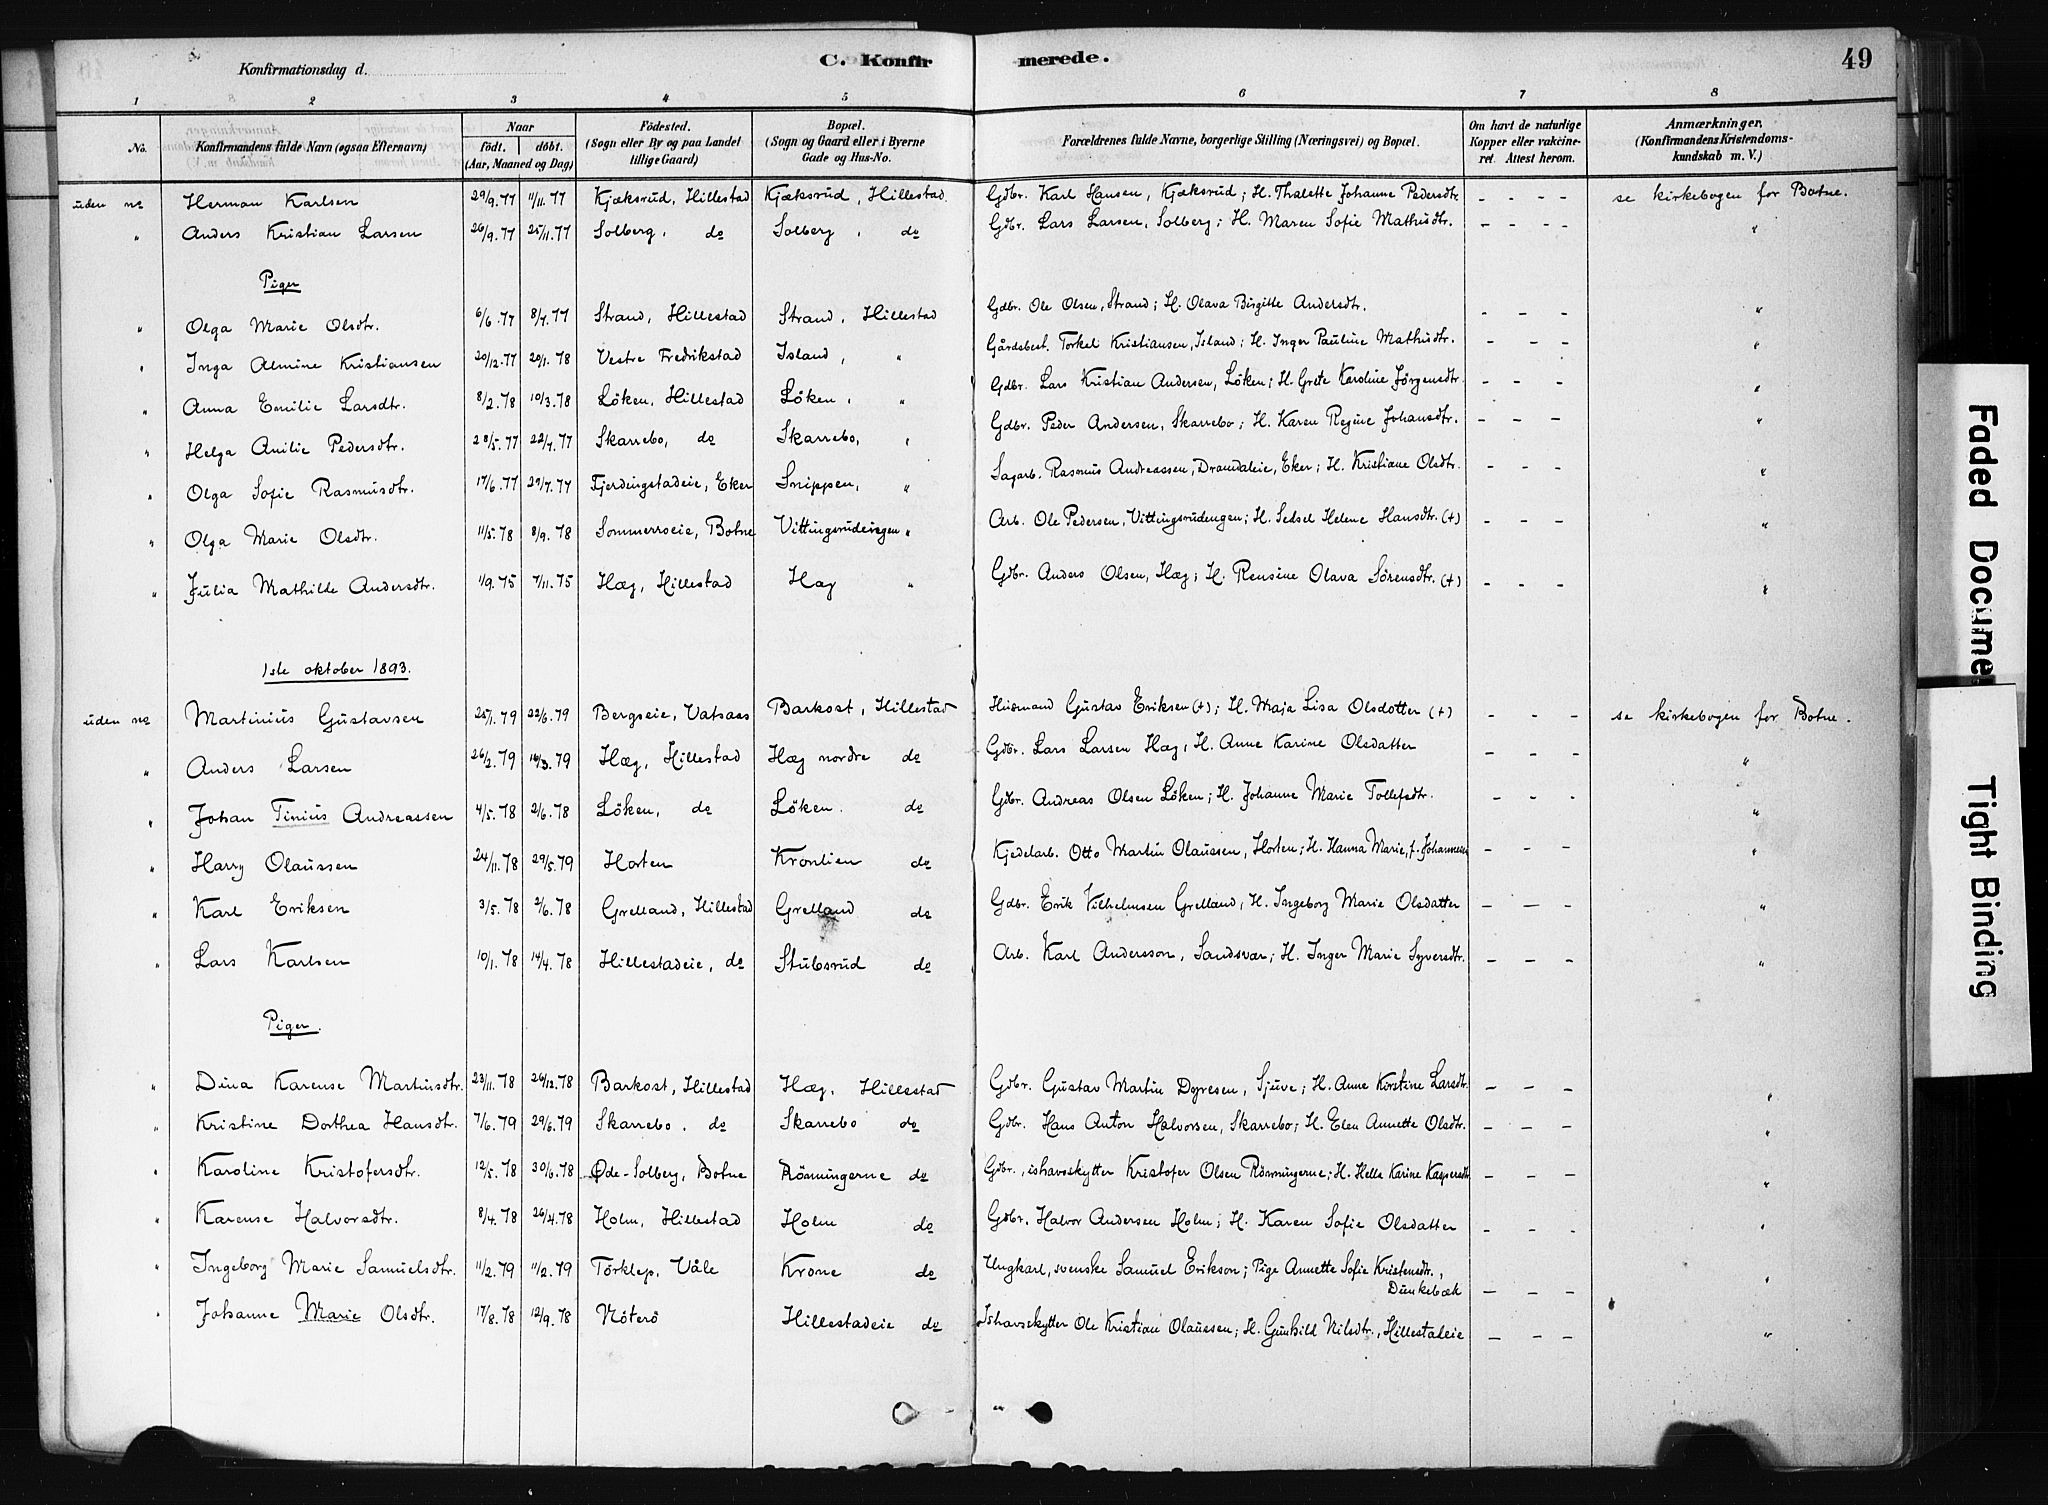 Konfirmationsdag d. C. Konfirmerede. 49
1 2 3 4 5 6 7 8
No. Konfirmandens fulde Navn (ogsaa Efternavn) Naar födt. döbt. (Aar, Maaned og Dag) Födested. (Sogn eller By og paa Landet tillige Gaard) Bopæl. (Sogn og Gaard eller i Byerne Gade og Hus-No. Forældrenes fulde Navne, borgerlige Stilling (Næringsvei) og Bopæl. Om havt de naturlige Kopper eller vakcineret. Attest herom. Anmærkninger. (Konfirmandens Kristendomskundskab m. V.)
uden no Herman Karlsen 29/9.77 11/11.77 Kjæksrud, Hillestad Kjæksrud, Hillestad. Gdbr. Karl Hansen, Kjæksrud; H. Thalette Johanne Pedersdtr. - - - - se kirkebogen for Botne.
" Anders Kristian Larsen 26/9.77 25/11.77 Solberg, do Solberg, do Gdbr. Lars Larsen, Solberg; H. Maren Sofie Mathisdtr. - - - - "
Piger
" Olga Marie Olsdtr. 6/6.77 8/7.77 Strand, Hillestad Strand, Hillestad Gdbr. Ole Olsen, Strand; H. Olava Birgitte Andersdtr. - - - "
" Inga Almine Kristiansen 20/12.77 20/1.78 Vestre Fredrikstad Island, " Gårdsbest. Torkel Kristiansen, Island; H. Inger Pauline Mathisdtr. - - - "
" Anna Emilie Larsdtr. 8/2.78 10/3.78 Löken, Hillestad Löken, " Gdbr. Lars Kristian Andersen, Löken; H. Grete Karoline Jørgensdtr. - - - "
" Helga Anilie Pedersdtr. 28/5.77 22/7.77 Skarrebo, do Skarrebo, " Gdbr. Peder Andersen, Skarrebo; H. Karen Regine Johansdtr. - - - "
" Olga Sofie Rasmusdtr. 17/6.77 29/7.77 Fjerdingstadeie, Eker Snippen, " Sagarb. Rasmus Andreassen, Dramdaleie, Eker; H. Kristiane Olsdtr. - - - "
" Olga Marie Olsdtr. 11/5.78 8/9.78 Sommerroeie, Botne Vittingsrudeiegen " Arb. Ole Pedersen, Vittingsrudengen; H. Sedsel Helene Hansdtr. (+) - - - "
" Julia Mathilde Andersdtr. 1/9.75 7/11.75 Hæg, Hillestad Hag " Gdbr. Anders Olsen, Hæg; H. Rensine Olava Sörensdtr. (+) - - - "
1ste oktober 1893.
uden no Martinius Gustavsen 25/1.79 22/6.79 Bergseie, Vatsaas Barkost, Hillestad Husmand Gustav Eriksen (+); H. Maja Lisa Olsdotter (+) - - - se kirkebogen for Botne.
" Anders Larsen 26/2.79 16/3.79 Hæg, Hillestad Hæg nordre do Gdbr. Lars Larsen Hæg; H. Anne Karine Olsdatter - - - "
" Johan Tinius Andreassen 4/5.78 2/6.78 Löken, do Löken. do Gdbr. Andreas Olsen Löken; H. Johanne Marie Tollefsdtr. - - - "
" Harry Olaussen 24/11.78 29/5.79 Horten Kronlien do Kjedelarb. Otto Martin Olaussen, Horten; H. Hanna Marie, f. Johannesen - - - "
" Karl Eriksen 3/5.78 2/6.78 Grelland, Hillestad Grelland do Gdbr. Erik Vilhelmsen Grelland; H. Ingeborg Marie Olsdatter - - - "
" Lars Karlsen 10/1.78 14/4.78 Hillestadeie, do Stubsrud do Arb. Karl Andersson, Sandsvær; H. Inger Marie Syversdtr. - - - "
Piger.
" Dina Karense Martinsdtr. 23/11.78 26/12.78 Barkost, Hillestad Hæg, Hillestad Gdbr. Gustav Martin Dyresen, Sjuve; H. Anne Kirstine Larsdtr. - - - "
" Kristine Dorthea Hansdtr. 7/6.79 29/6.79 Skarrebo. do Skarrebo do Gdbr. Hans Anton Halvorsen, Skarrebo; H. Elen Annette Olsdtr. - - - "
" Karoline Kristofersdtr. 12/5.78 30/6.78 Øde-Solberg, Botne Rönningerne do Gdbr., ishavsskytter Kristofer Olsen Rönningerne; H. Helle Karine Kaspersdtr. - - - "
" Karense Halvorsdtr. 8/4.78 26/4.78 Holm, Hillestad Holm do Gdbr. Halvor Andersen Holm; H. Karen Sofie Olsdatter - - - "
" Ingeborg Marie Samuelsdtr. 11/2.79 11/2.79 Törklep, Våle Krone do Ungkarl, svenske Samuel Erikson; Pige Annette Sofie Kristensdtr., Dunkebæk - - - "
" Johanne Marie Olsdtr. 17/8.78 12/9.78 Nöterö Hillestadeie do Ishavsskytter Ole Kristian Olaussen; H. Gunhild Nilsdtr., Hillestadeie - - - "
Faded Docume
Tight Binding